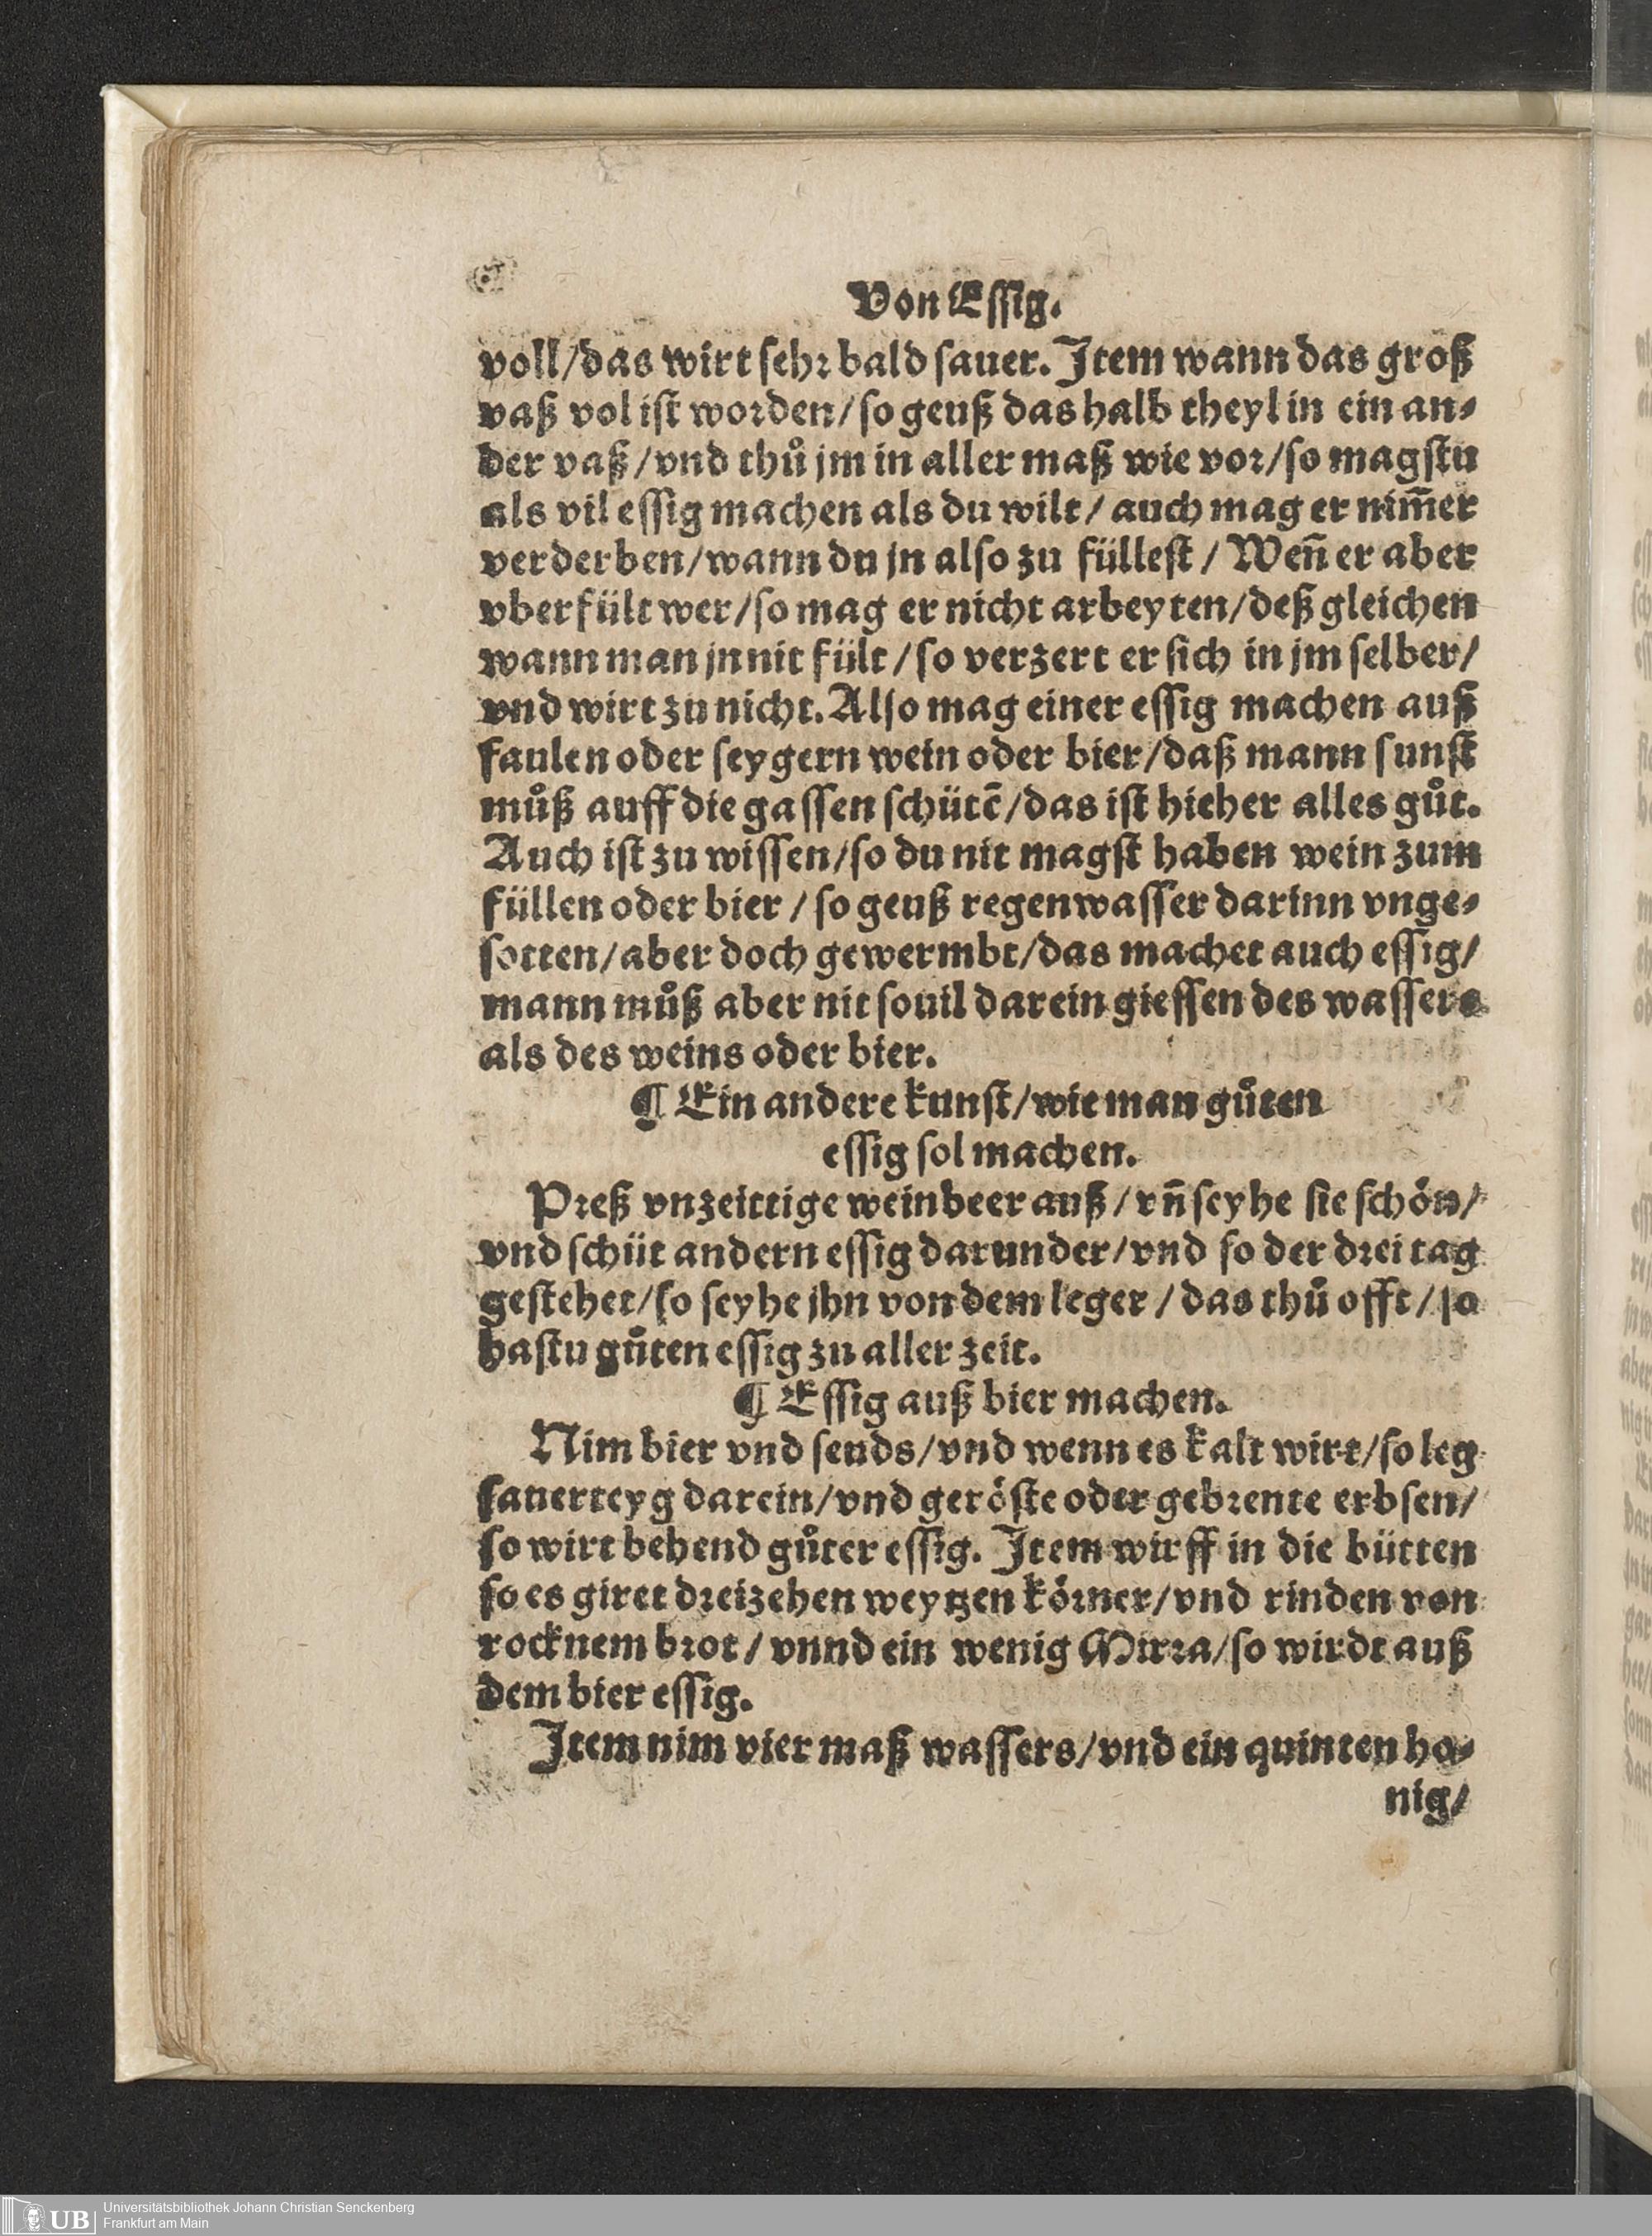 Von Eſſig.
voll/das wirt ſehꝛ bald ſauer. Item wann das groß
vaß vol iſt woꝛden/ſo geuß das halb theyl in ein an⸗
der vaß/vnd thuͦ jm in aller maß wie voꝛ/ſo magſtu
als vil eſſig machen als du wilt/ auch mag er nim̄er
verderben/wann du jn alſo zu fülleſt / Wen̄ er aber
vberfült wer/ſo mag er nicht arbeyten/deß gleichen
wann man jn nit fült / ſo verzert er ſich in jm ſelber/
vnd wirt zu nicht. Alſo mag einer eſſig machen auß
faulen oder ſeygern wein oder bier/daß mann ſunſt
muͦß auff die gaſſen ſchütē/das iſt hieher alles guͦt.
Auch iſt zu wiſſen/ſo du nit magſt haben wein zum
füllen oder bier / ſo geuß regenwaſſer darinn vnge⸗
ſotten/aber doch gewermbt/das machet auch eſſig/
mann muͦß aber nit ſouil darein gieſſen des waſſers
als des weins oder bier.
¶ Ein andere kunſt/wie man guͦten
eſſig ſol machen.
Pꝛeß vnzeittige weinbeer auß / vn̄ ſeyhe ſie ſchoͤn/
vnd ſchüt andern eſſig darunder/vnd ſo der dꝛei tag
geſtehet/ſo ſeyhe jhn von dem leger / das thuͦ offt/ ſo
haſtu guͦten eſſig zu aller zeit.
¶ Eſſig auß bier machen.
Nim bier vnd ſeuds/vnd wenn es kalt wirt/ſo leg
ſauerteyg darein/vnd geroͤſte oder gebꝛente erbſen/
ſo wirt behend guͦter eſſig. Item wirff in die bütten
ſo es giret dꝛeizehen weytzen koͤꝛner/vnd rinden von
rocknem bꝛot / vnnd ein wenig Mirꝛa/ſo wirdt auß
dem bier eſſig.
Item nim vier maß waſſers/vnd ein quinten ho⸗
nig/
UB
Universitätsbibliothek Johann Christian Senckenberg
Frankfurt am Main